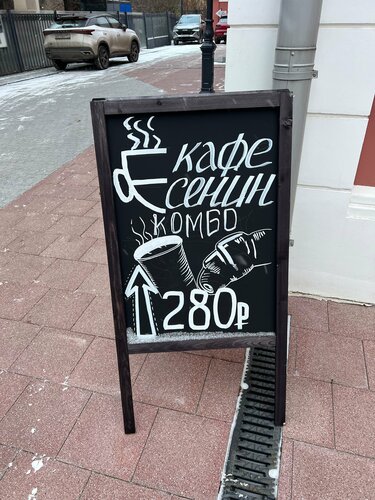 кафе
Есенин
КОМБО
280₽